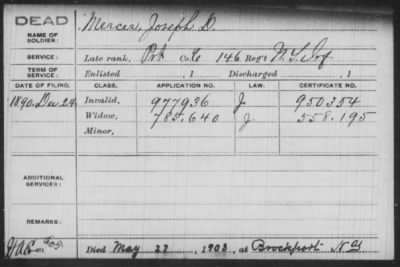 DEAD
NAME OF SOLDIER: Mercer, Joseph D.
SERVICE: Late rank, Pvt Co. C 146 Reg't N.Y. Inf
TERM OF SERVICE: Enlisted , 1 Discharged , 1
DATE OF FILING. CLASS. APPLICATION NO. LAW. CERTIFICATE NO.
1890. Dec. 24. Invalid, 977936 J. 950354
Widow, 785.640 J. 558.195
Minor,
ADDITIONAL SERVICES:
REMARKS:
Died May 27, 1903, at Brockport N Y